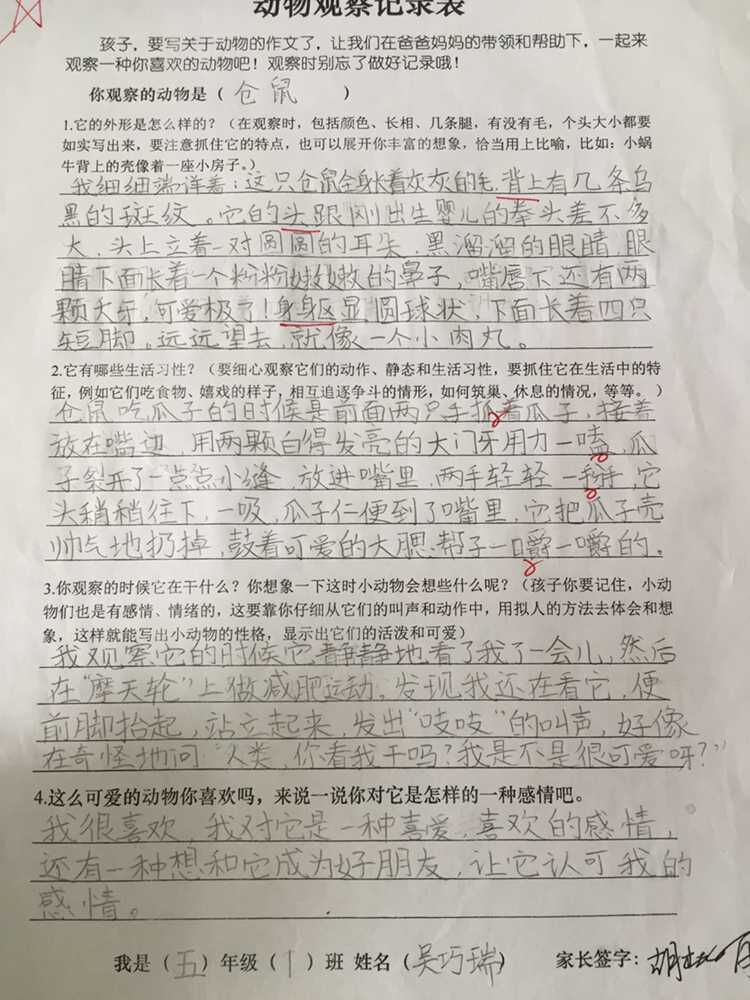 动物观察记录表
孩子，要写关于动物的作文了，让我们在爸爸妈妈的带领和帮助下，一起来
观察一种你喜欢的动物吧！观察时别忘了做好记录哦！
你观察的动物是（仓鼠）
1.它的外形是怎么样的？（在观察时，包括颜色、长相、几条腿，有没有毛，个头大小都要
如实写出来，要注意抓住它的特点，也可以展开你丰富的想象，恰当用上比喻，比如：小蜗
牛背上的壳像着一座小房子。）
我细细端详着：这只仓鼠全身长着灰灰的毛，背上有几条乌
黑的斑纹。它的头跟刚出生婴儿的拳头差不多
大，头上立着一对圆圆的耳朵，黑溜溜的眼睛，眼
睛下面长着一个粉粉嫩嫩的鼻子，嘴唇下还有两
颗大牙，可爱极了！身躯显圆球状，下面长着四只
短脚。远远望去，就像一个小肉丸。
2.它有哪些生活习性？（要细心观察它们的动作、静态和生活习性，要抓住它在生活中的特
征，例如它们吃食物、嬉戏的样子，相互追逐争斗的情形，如何筑巢、休息的情况，等等。）
仓鼠吃瓜子的时候是前面两只手抓着瓜子，接着
放在嘴边，用两颗白得发亮的大门牙用力一嗑，瓜
子裂开了一点点小缝，放进嘴里，两手轻轻一掰，它
头稍稍往下，一吸，瓜子仁便到了嘴里，它把瓜子壳
帅气地扔掉，鼓着可爱的大腮帮子一嚼一嚼的。
3.你观察的时候它在干什么？你想象一下这时小动物会想些什么呢？（孩子你要记住，小动
物们也是有感情、情绪的，这要靠你仔细从它们的叫声和动作中，用拟人的方法去体会和想
象，这样就能写出小动物的性格，显示出它们的活泼和可爱）
我观察它的时候它静静地看了我了一会儿，然后
在“摩天轮”上做减肥运动。发现我还在看它，便
前脚抬起，站立起来，发出“吱吱”的叫声，好像
在奇怪地问“人类，你看我干吗？我是不是很可爱呀？”
4.这么可爱的动物你喜欢吗，来说一说你对它是怎样的一种感情吧。
我很喜欢，我对它是一种喜爱，喜欢的感情，
还有一种想和它成为好朋友，让它认可我的
感情。
我是（五）年级（1）班 姓名（吴巧瑞） 家长签字：胡